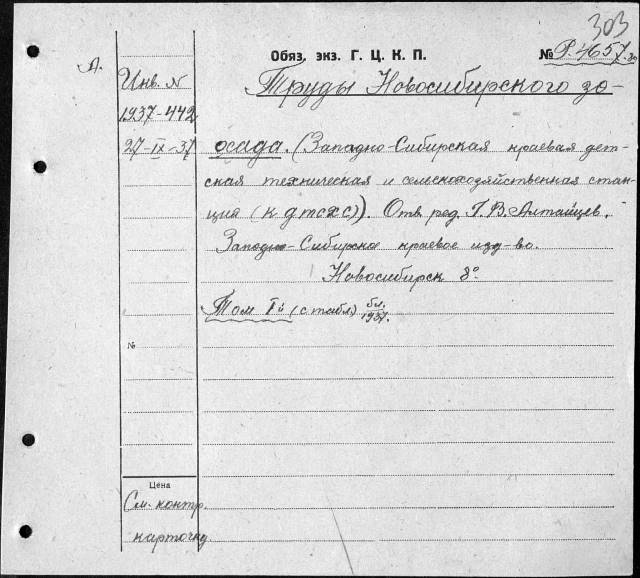 303
Обяз. экз. Г. Ц. К. П.
№ Р.4657.
А.
Инв. N
1937-442
27-IX-37
Труды Новосибирского зо-
осада. (Западно-Сибирская краевая дет-
ская техническая и сельскохозяйственная стан-
ция (КДТСХС)). Отв. ред. Г. В. Алтайцев.
Западно-Сибирское краевое изд-во.
Новосибирск 8°
Том Iй (с табл.) 1937.
№
Цена
См. контр.
карточку.